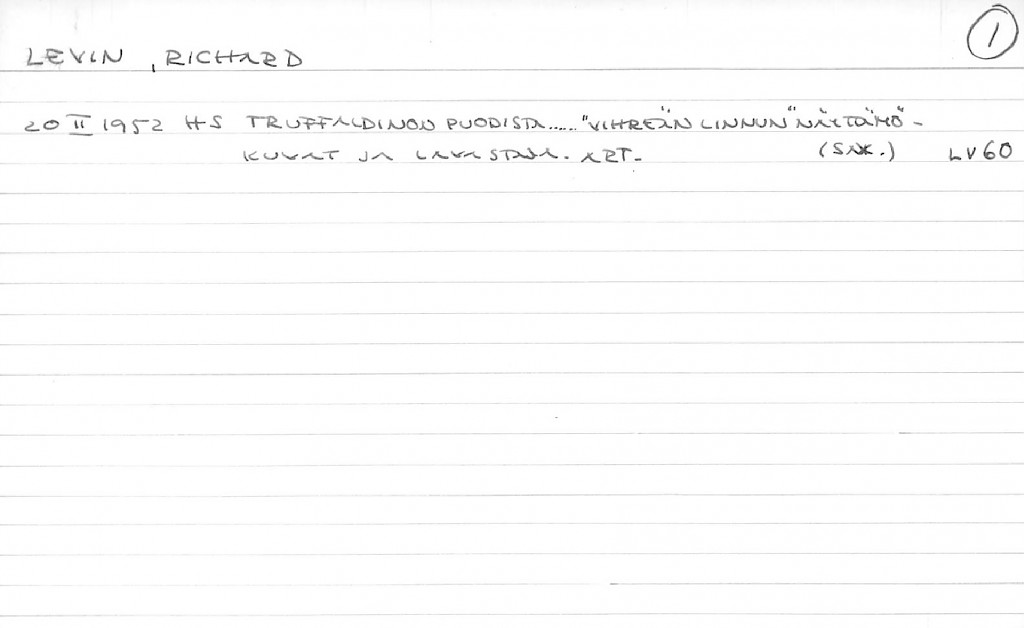 1
LEVIN, RICHARD
20 II 1952 HS TRUFFALDINON PUODISTA..... "VIHREÄN LINNUN" NÄYTTÄMÖ-
KUVAT JA LAVASTAJA. ART. (SAK.) LV60